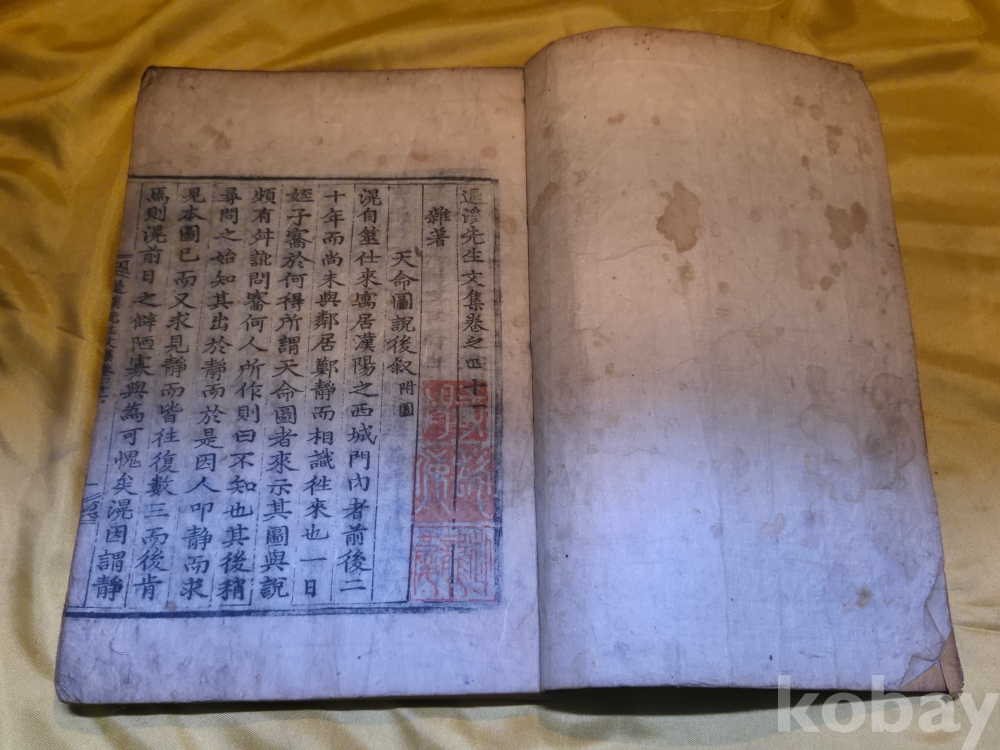 退溪先生文集卷之四十一
雜著
天命圖說後叙附圖
滉自筮仕來寓居漢陽之西城門內者前後二
十年而尚未與鄰居鄭靜而相識徃來也一日
姪子㝯於何得所謂天命圖者來示其圖與說
頗有舛訛問㝯何人所作則曰不知也其後稍
尋問之始知其出於靜而於是因人叩靜而求
見本圖已而又求見靜而皆徃復數三而後肯
焉則滉前日之僻陋寡與爲可愧矣滉因謂靜
kobay